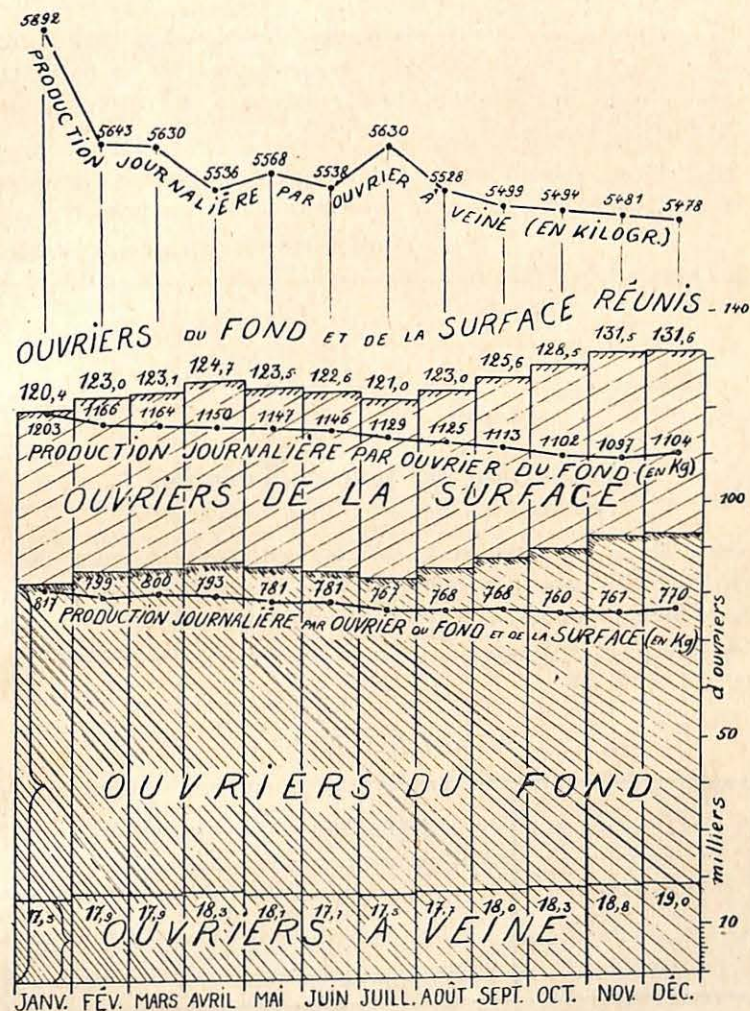 5892
5643 5630 5536 5568 5538 5630 5528 5499 5494 5481 5478
PRODUCTION JOURNALIÈRE PAR OUVRIER À VEINE (EN KILOGR.)
OUVRIERS DU FOND ET DE LA SURFACE RÉUNIS
140
120,4 123,0 123,1 124,7 123,5 122,6 121,0 123,0 125,6 128,5 131,5 131,6
1203 1166 1164 1150 1147 1146 1129 1125 1113 1102 1097 1104
PRODUCTION JOURNALIÈRE PAR OUVRIER DU FOND (EN Kg)
OUVRIERS DE LA SURFACE
100
817 799 800 793 781 781 767 768 768 760 761 770
PRODUCTION JOURNALIÈRE PAR OUVRIER DU FOND ET DE LA SURFACE (EN Kg)
milliers d'ouvriers
50
OUVRIERS DU FOND
17,3 17,9 17,9 18,3 18,1 17,7 17,3 17,7 18,0 18,3 18,8 19,0
10
OUVRIERS À VEINE
JANV. FÉV. MARS AVRIL MAI JUIN JUILL. AOÛT SEPT. OCT. NOV. DÉC.